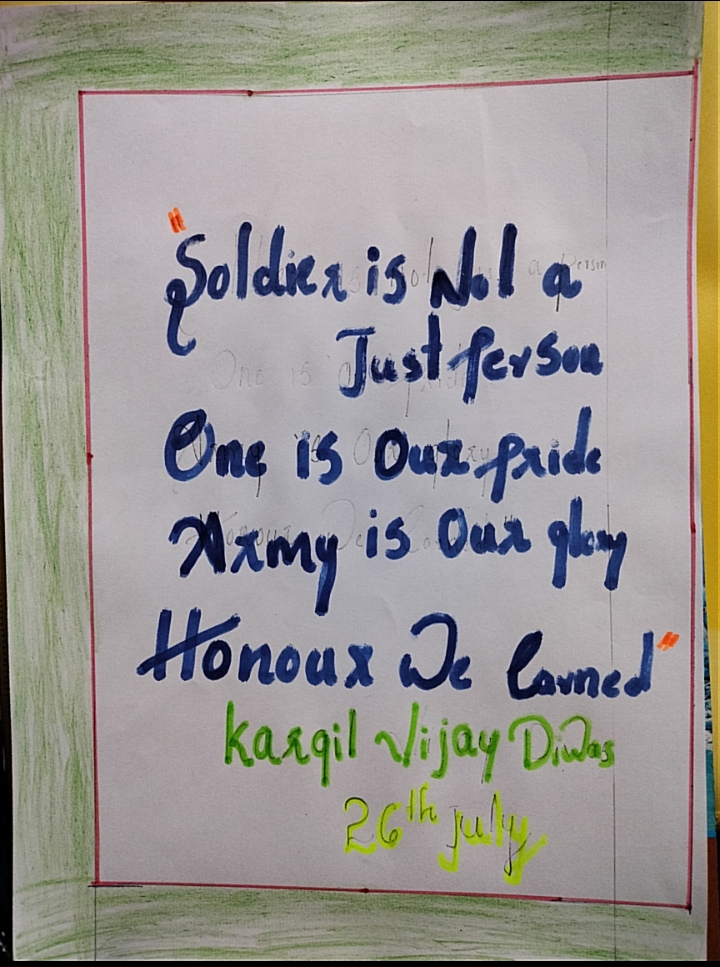 "Soldier is Not a
Just person
One is Our pride
Army is Our glory
Honour We Earned"
Kargil Vijay Diwas
26th July